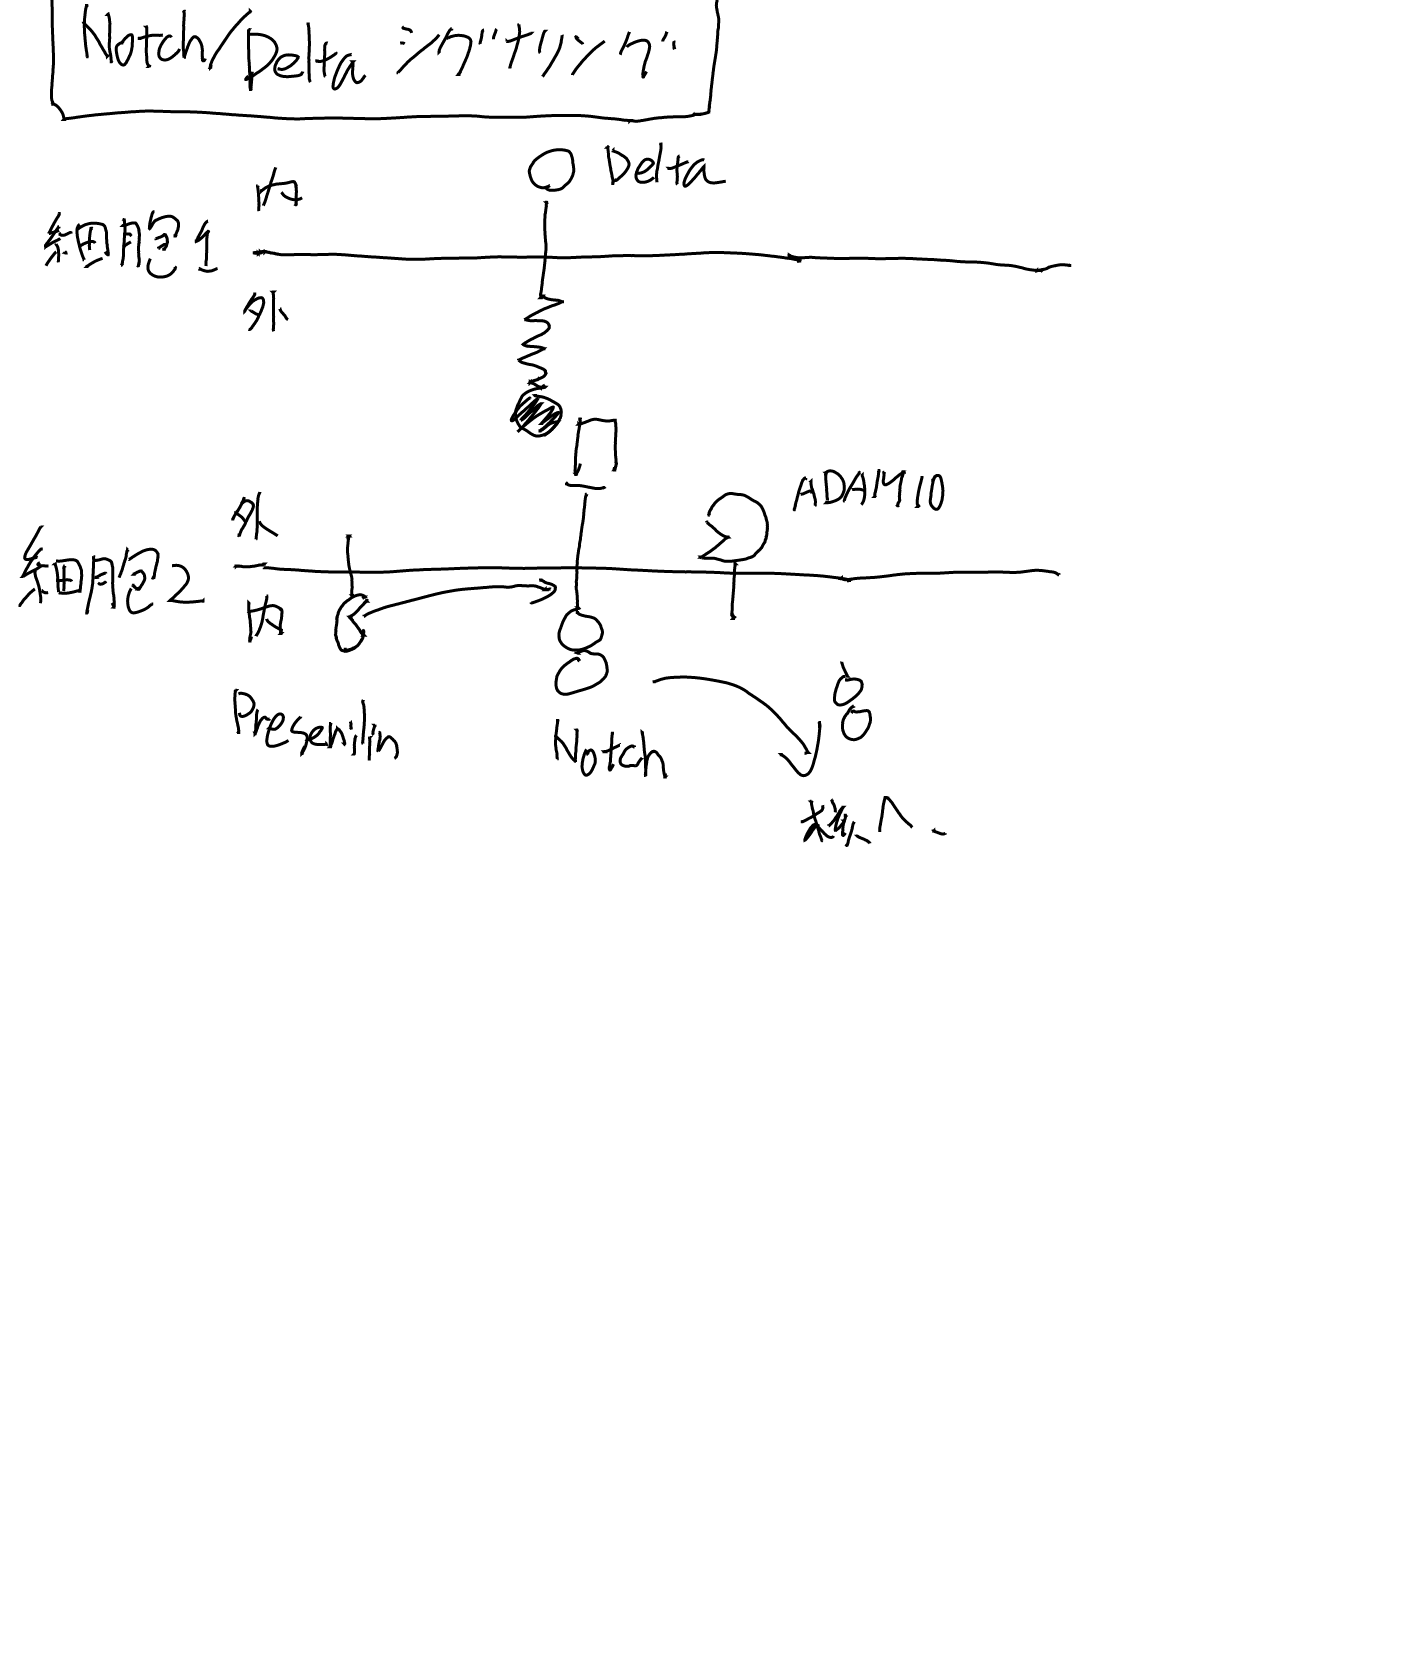 Notch/Delta シグナリング
Delta
内
細胞1
外
ADAM10
外
細胞2
内
Presenilin
Notch
核へ.